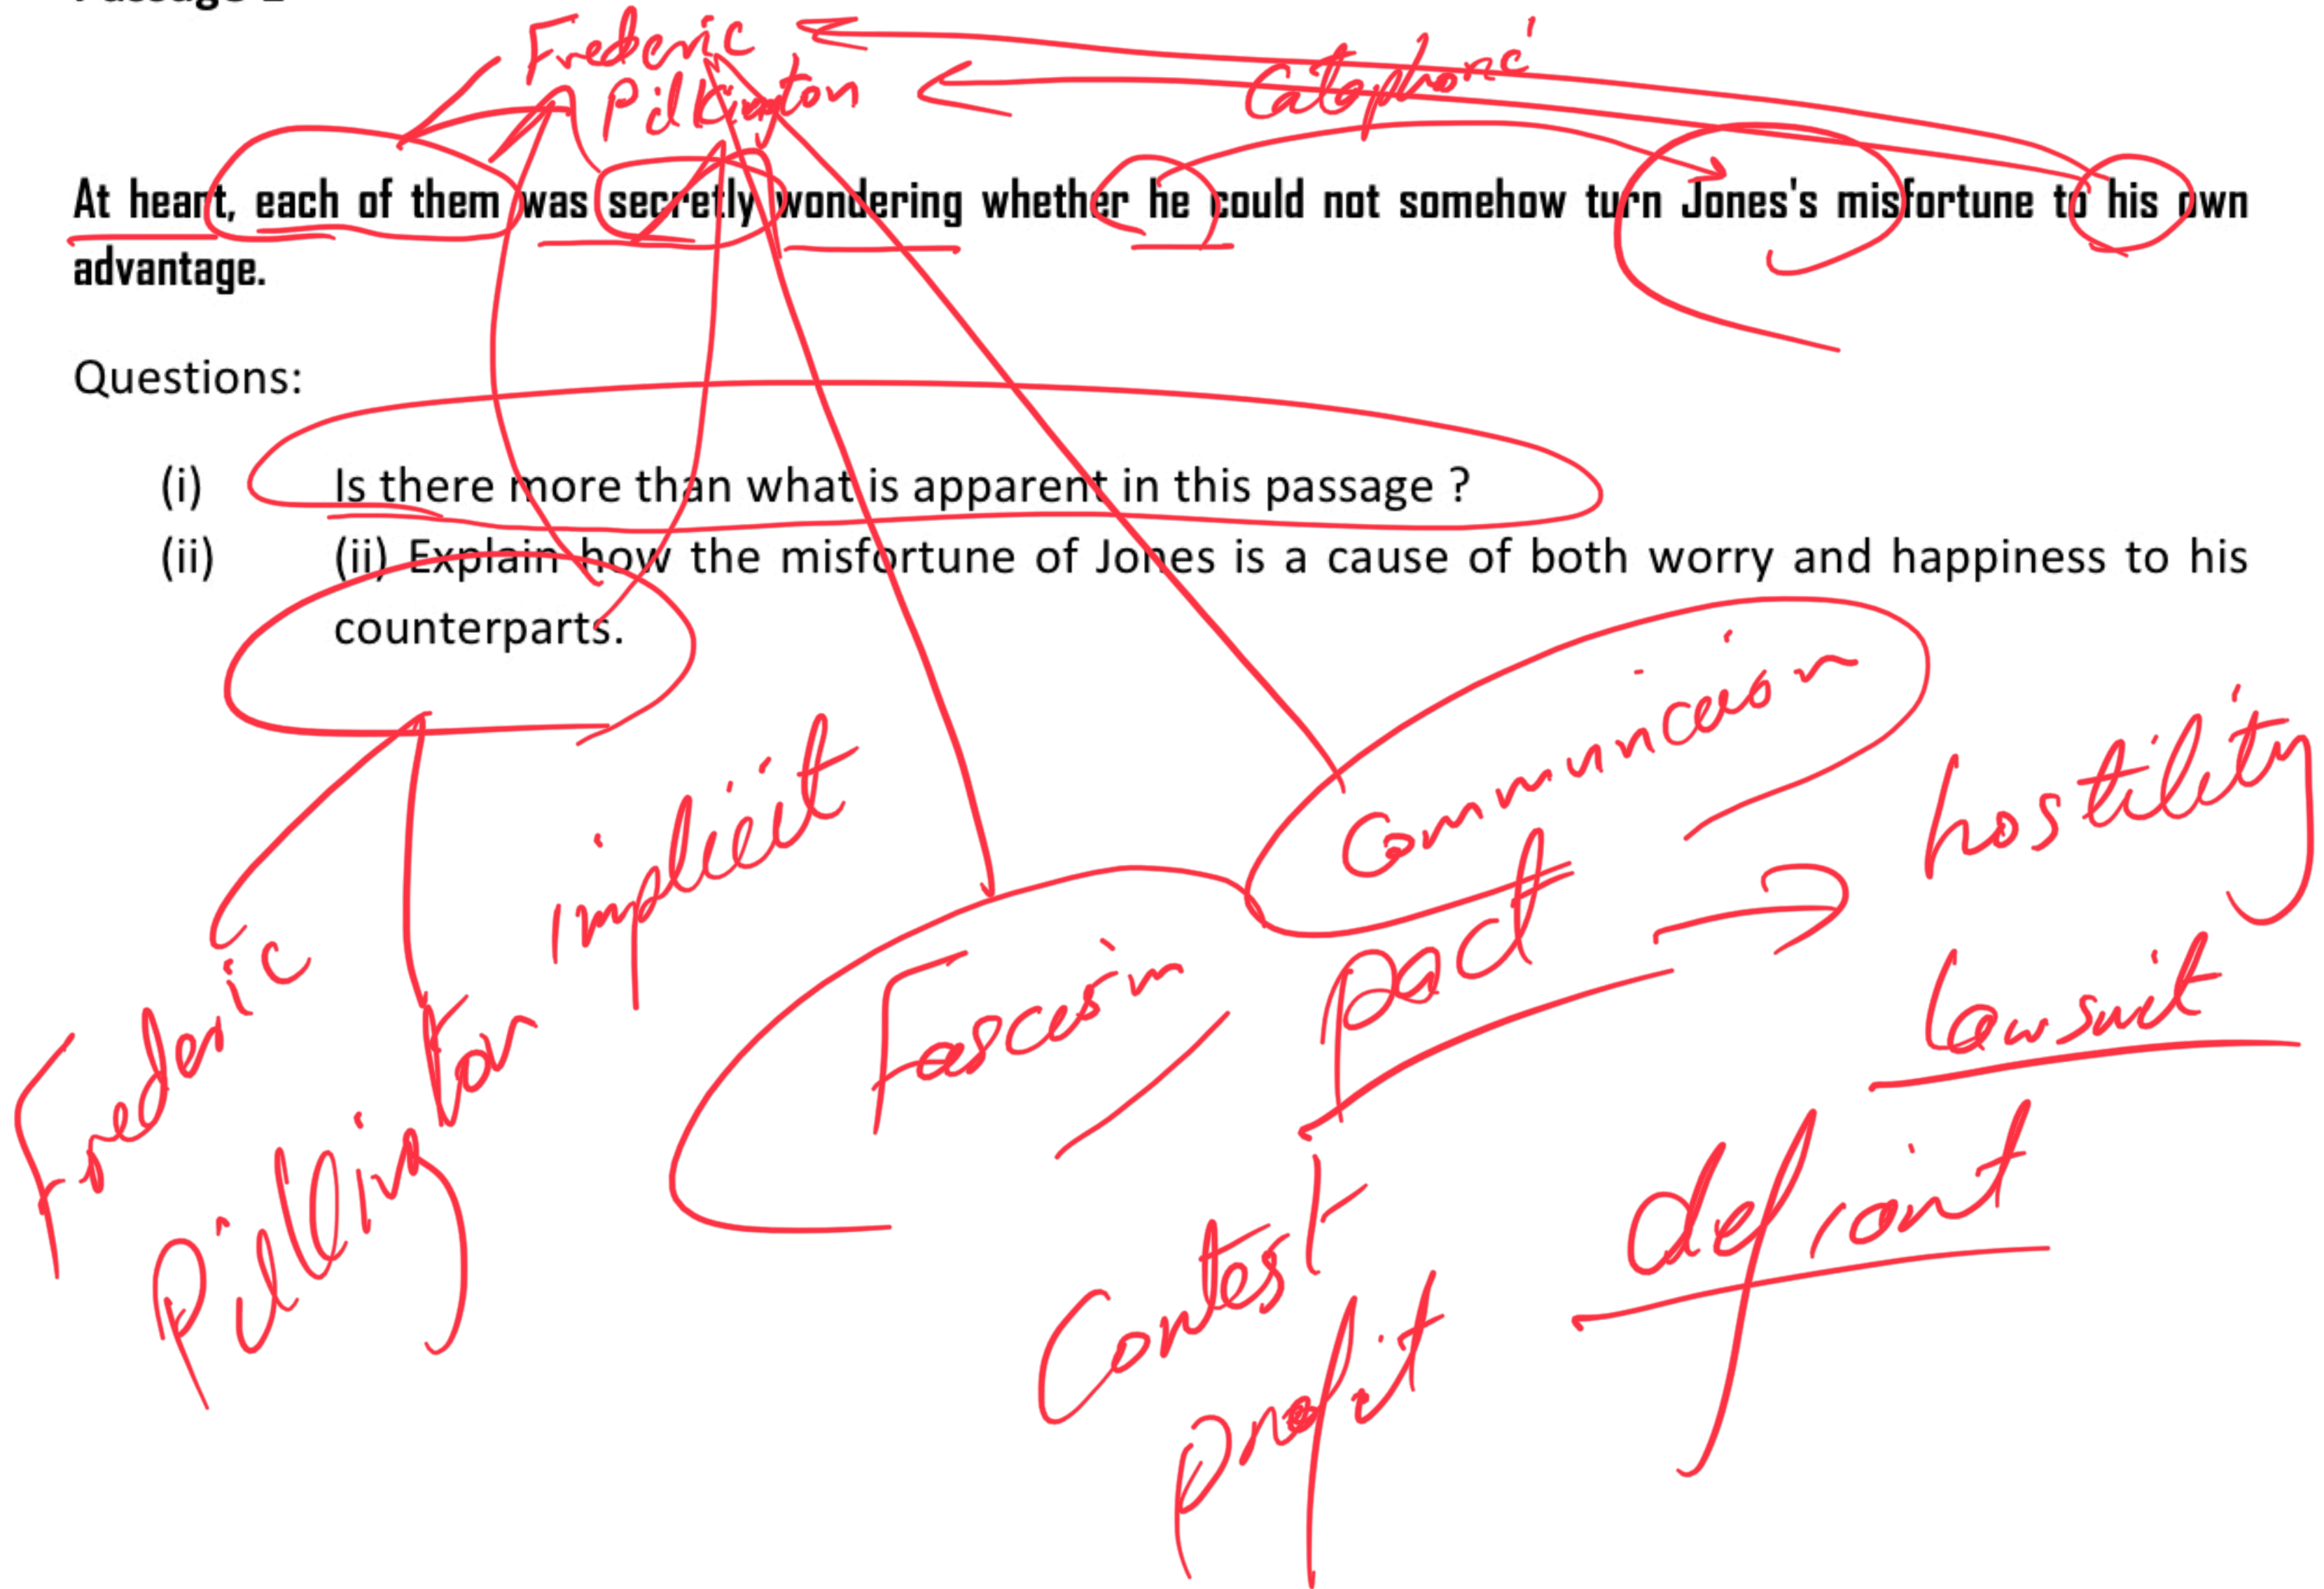 Frederic
Pilkington
Cataphoric
At heart, each of them was secretly wondering whether he could not somehow turn Jones's misfortune to his own
advantage.
Questions:
(i) Is there more than what is apparent in this passage ?
(ii) (ii) Explain how the misfortune of Jones is a cause of both worry and happiness to his
counterparts.
implicit
Frederic
Pillington
Fascism
Communism
pact
hostility
lawsuit
Contest
profit
defiant